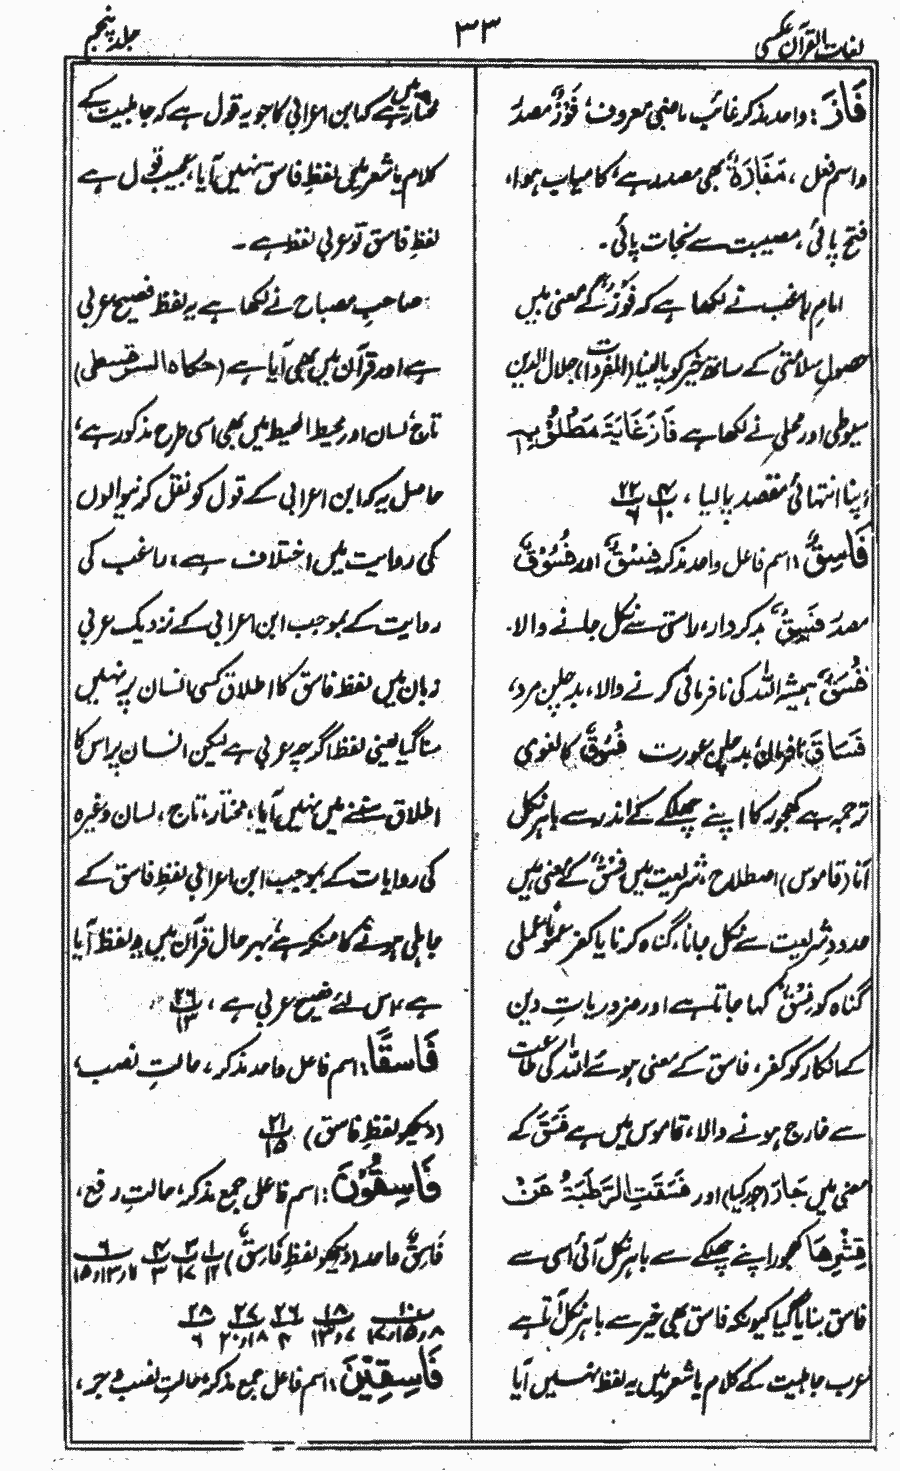 لغات القرآن عکسی
۳۳
جلد پنجم
فَازَ: واحد مذکر غائب ماضی معروف فَوْزٌ مصدر
و اسم فعل، مَفَازَةٌ بھی مصدر ہے، کامیاب ہوا،
فتح پائی، مصیبت سے نجات پائی۔
امام راغب نے لکھا ہے کہ فَوْزٌ کے معنی ہیں
حصولِ سلامتی کے ساتھ خیر کو پالینا (المفردات) جلال الدین
سیوطی اور محلی نے لکھا ہے فَازَ غَايَةَ مَطْلُوْبِهٖ
اپنا انتہائی مقصد پالیا،
فَاسِقٌ: اسم فاعل واحد مذکر فِسْقٌ اور فُسُوْقٌ
مصدر فَسِيقٌ بدکردار، راستی سے نکل جانے والا۔
فُسَقٌ ہمیشہ اللہ کی نافرمانی کرنے والا، بدچلن مرد،
فَسَاقِ نافرمان، بدچلن عورت فُسُوْقٌ کا لغوی
ترجمہ ہے کھجور کا اپنے چھلکے کے اندر سے باہر نکل
آنا (قاموس) اصطلاح شریعت میں فِسْقٌ کے معنی ہیں
حدودِ شریعت سے نکل جانا، گناہ کرنا یا کفر عموماً عملی
گناہ کو فِسْقٌ کہا جاتا ہے اور ضروریاتِ دین
کے انکار کو کفر، فاسق کے معنی ہوئے اللہ کی طاعت
سے خارج ہونے والا، قاموس میں ہے فَسَقَ کے
معنی ہیں جَارَ (جور کیا) اور فَسَقَتِ الرُّطَبَةُ عَنْ
قِشْرِهَا کھجور اپنے چھلکے سے باہر نکل آئی اسی سے
فاسق بنایا گیا کیونکہ فاسق بھی خیر سے باہر نکل آتا ہے
عرب جاہلیت کے کلام یا شعر میں یہ لفظ نہیں آیا
مختار میں ہے کہ ابن اعرابی کا جو یہ قول ہے کہ جاہلیت کے
کلام یا شعر میں لفظِ فاسق نہیں آیا، عجیب قول ہے
لفظِ فاسق تو عربی لفظ ہے۔
صاحبِ مصباح نے لکھا ہے یہ لفظ فصیح عربی
ہے اور قرآن میں بھی آیا ہے (حکاہ السرقسطی)
تاج، لسان اور محیط المحیط میں بھی اسی طرح مذکور ہے،
حاصل یہ کہ ابن اعرابی کے قول کو نقل کرنیوالوں
کی روایت میں اختلاف ہے، راغب کی
روایت کے بموجب ابن اعرابی کے نزدیک عربی
زبان میں لفظ فاسق کا اطلاق کسی انسان پر نہیں
سنا گیا یعنی لفظ اگرچہ عربی ہے لیکن انسان پر اس کا
اطلاق سننے میں نہیں آیا، مختار، تاج، لسان وغیرہ
کی روایات کے بموجب ابن اعرابی لفظِ فاسق کے
جاہلی ہونے کا منکر ہے، بہر حال قرآن میں یہ لفظ آیا
ہے، اس لئے فصیح عربی ہے، ۲۶/۱۳
فَاسِقًا: اسم فاعل واحد مذکر، حالتِ نصب،
(دیکھو لفظِ فاسق) ۲۱/۱۵
فَاسِقُوْنَ: اسم فاعل جمع مذکر، حالتِ رفع،
فَاسِقٌ واحد (دیکھو لفظِ فَاسِقٌ)
فَاسِقِيْنَ: اسم فاعل جمع مذکر، حالتِ نصب و جر،